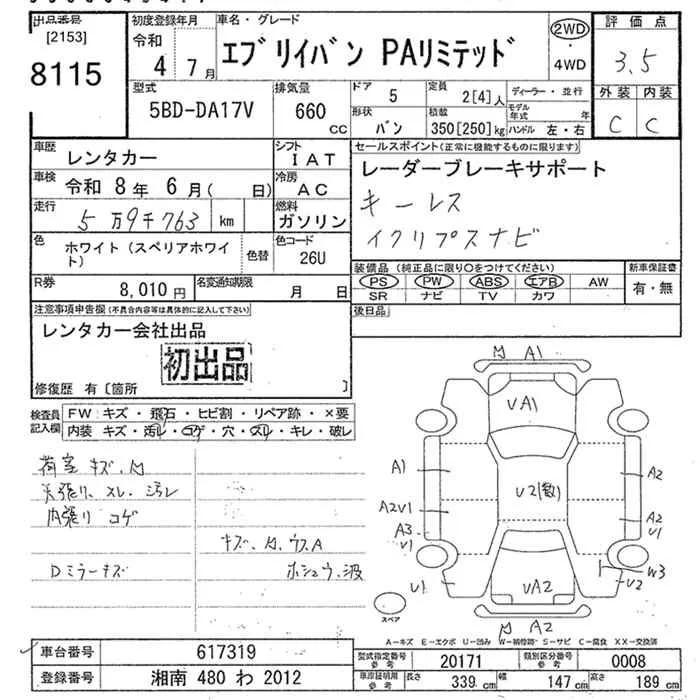 出品番号
[2153]
8115
初度登録年月
令和
4年 7月
車名・グレード
エブリイバン PAリミテッド
2WD
・
4WD
評価点
3.5
外装 内装
C C
型式
5BD-DA17V
排気量
660
CC
ドア 5
形状
バン
定員 2[4]人
積載
350[250]kg
ディーラー・並行
モデル
年式 年
ハンドル 左・右
車歴
レンタカー
シフト
IAT
車検
令和 8年 6月( 日)
冷房
AC
走行
5万9千763 km
燃料
ガソリン
色
ホワイト(スペリアホワイ
ト)
色替
色コード
26U
R券
8,010円
名変通知期限
月 日
セールスポイント(正常に機能するものに限ります)
レーダーブレーキサポート
キーレス
イクリプスナビ
装備品(純正品に限り○をつけてください)
PS PW ABS エアB AW
SR ナビ TV カワ
新車保証書
有・無
後日品
注意事項申告欄(不具合内容等は具体的に記入して下さい)
レンタカー会社出品
初出品
修復歴 有〔箇所 〕
検査員
記入欄
FW:キズ・飛石・ヒビ割・リペア跡・×要
内装 キズ・汚レ・コゲ・穴・スレ・キレ・破レ
荷室キズ、M
天張り、スレ、汚レ
内張り コゲ
Dミラーキズ
キズ、M、ウスA
ホシュウ、波
M A1
VA1
A1
A2
V2(数)
A2V1
A2
V1
A3
V1
W3
V1
V2
VA2
M A2
スペア
A-キズ E-エクボ U-凹み W-補修跡 S-サビ C-腐食 XX-交換済
車台番号 617319
登録番号 湘南 480 わ 2012
型式指定番号
参考
20171
類別区分番号
参考
0008
車庫証明用
参考
長さ 339 cm
幅 147 cm
高さ 189 cm